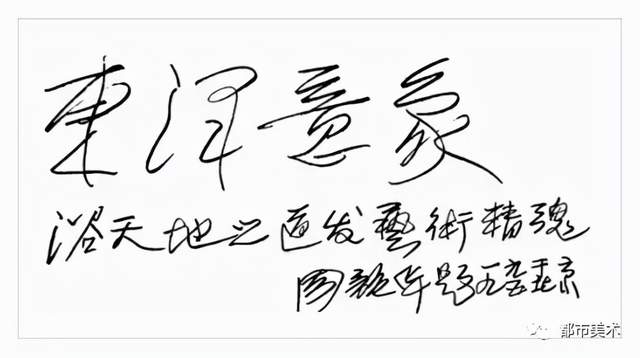 東泽意象
浴天地之道发藝術精魂
周韶华题 于北京
都市美术